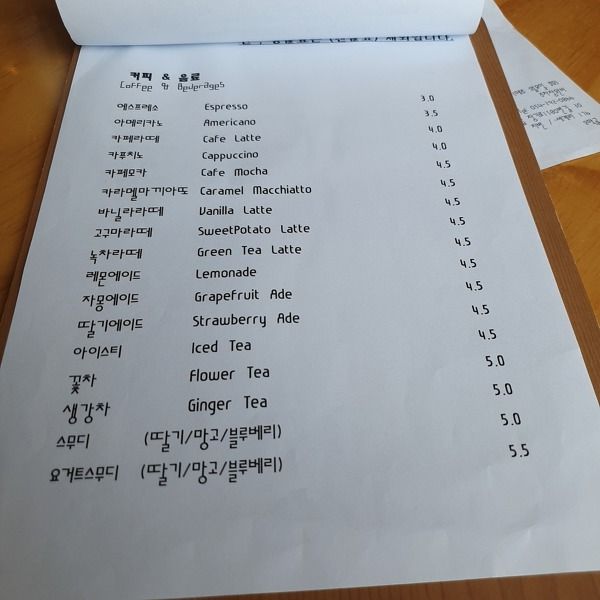 커피 & 음료
Coffee & Beverages
에스프레소 Espresso 3.0
아메리카노 Americano 3.5
카페라떼 Cafe Latte 4.0
카푸치노 Cappuccino 4.0
카페모카 Cafe Mocha 4.5
카라멜마끼아또 Caramel Macchiatto 4.5
바닐라라떼 Vanilla Latte 4.5
고구마라떼 SweetPotato Latte 4.5
녹차라떼 Green Tea Latte 4.5
레몬에이드 Lemonade 4.5
자몽에이드 Grapefruit Ade 4.5
딸기에이드 Strawberry Ade 4.5
아이스티 Iced Tea 4.5
꽃차 Flower Tea 5.0
생강차 Ginger Tea 5.0
스무디 (딸기/망고/블루베리) 5.0
요거트스무디 (딸기/망고/블루베리) 5.5